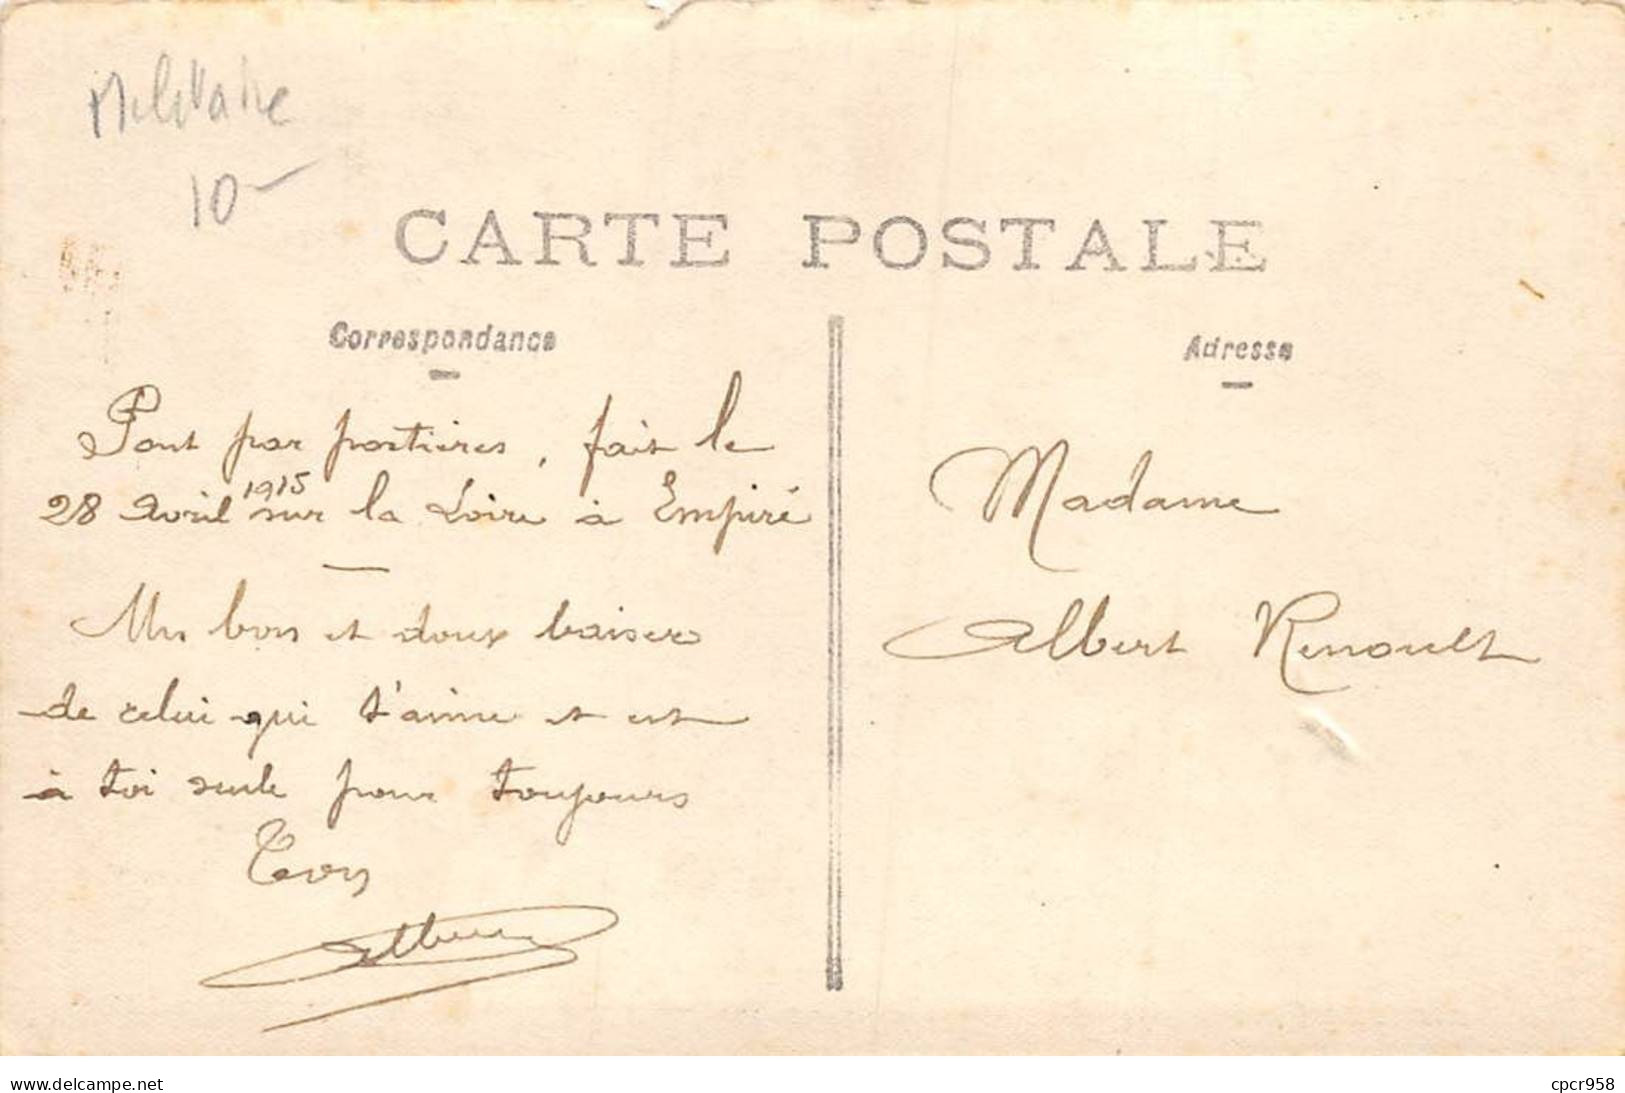 Militaire
10-
CARTE POSTALE
Correspondance
Adresse
Pont par portières, fait le
28 Avril 1915 sur la Loire à Empiré
Un bon et doux baiser
de celui qui t'aime et est
à toi seule pour toujours
Ton
Albert
Madame
Albert Renoult
www.delcampe.net
cpcr958